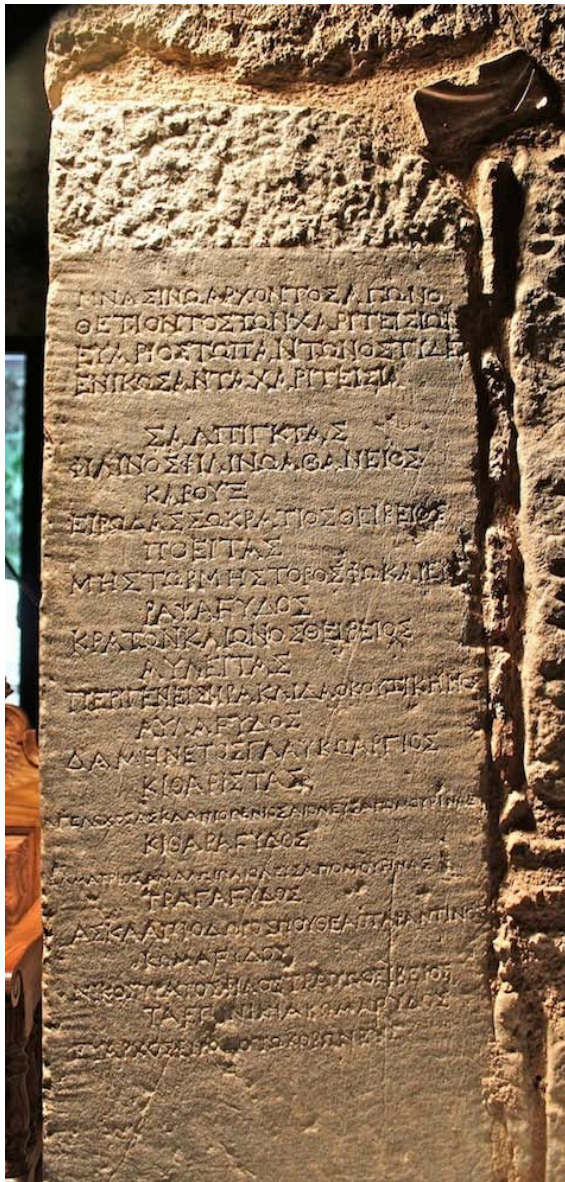 ΜΝΑΣΙΝΩΑΡΧΟΝΤΟΣΑΓΩΝΟ
ΘΕΤΙΟΝΤΟΣΤΩΝΧΑΡΙΤΕΙΣΙΩΝ
ΕΥΑΡΙΟΣΤΩΠΑΝΤΩΝΟΣΤΙΔΕ
ΕΝΙΚΩΣΑΝΤΑΧΑΡΙΤΕΙΣΙΑ
ΣΑΛΠΙΓΚΤΑΣ
ΦΙΛΙΝΟΣΦΙΛΙΝΩΑΘΑΝΕΙΟΣ
ΚΑΡΟΥΞ
ΕΙΡΩΔΑΣΣΩΚΡΑΤΙΟΣΘΕΙΒΕΙΟΣ
ΠΟΕΙΤΑΣ
ΜΗΣΤΩΡΜΗΣΤΟΡΟΣΦΩΚΑΙΕΥΣ
ΡΑΨΑϜΥΔΟΣ
ΚΡΑΤΩΝΚΛΙΩΝΟΣΘΕΙΒΕΙΟΣ
ΑΥΛΕΙΤΑΣ
ΠΕΡΙΓΕΝΕΙΣΗΡΑΚΛΙΔΑΟΚΟΥΖΙΚΗΝΟΣ
ΑΥΛΑϜΥΔΟΣ
ΔΑΜΗΝΕΤΟΣΓΛΑΥΚΩΑΡΓΙΟΣ
ΚΙΘΑΡΙΣΤΑΣ
ΑΓΕΛΟΧΟΣΑΣΚΛΑΠΙΟΓΕΝΙΟΣΑΙΟΛΕΥΣΑΠΟΜΟΥΡΙΝΑΣ
ΚΙΘΑΡΑϜΥΔΟΣ
ΑΙΟΛΕΥΣΑΠΟΜΟΥΡΙΝΑΣ
ΤΡΑΓΑϜΥΔΟΣ
ΑΣΚΛΑΠΙΟΔΩΡΟΣΠΟΥΘΕΑΟΤΑΡΑΝΤΙΝΟΣ
ΚΩΜΑϜΥΔΟΣ
ΝΙΚΟΣΤΡΑΤΟΣΦΙΛΟΣΤΡΑΤΩΘΕΙΒΕΙΟΣ
ΤΑΕΠΙΝΙΚΙΑΚΩΜΑϜΥΔΟΣ
ΕΥΑΡΧΟΣΕΙΡΟΔΟΤΩΚΟΡΩΝΕΥΣ